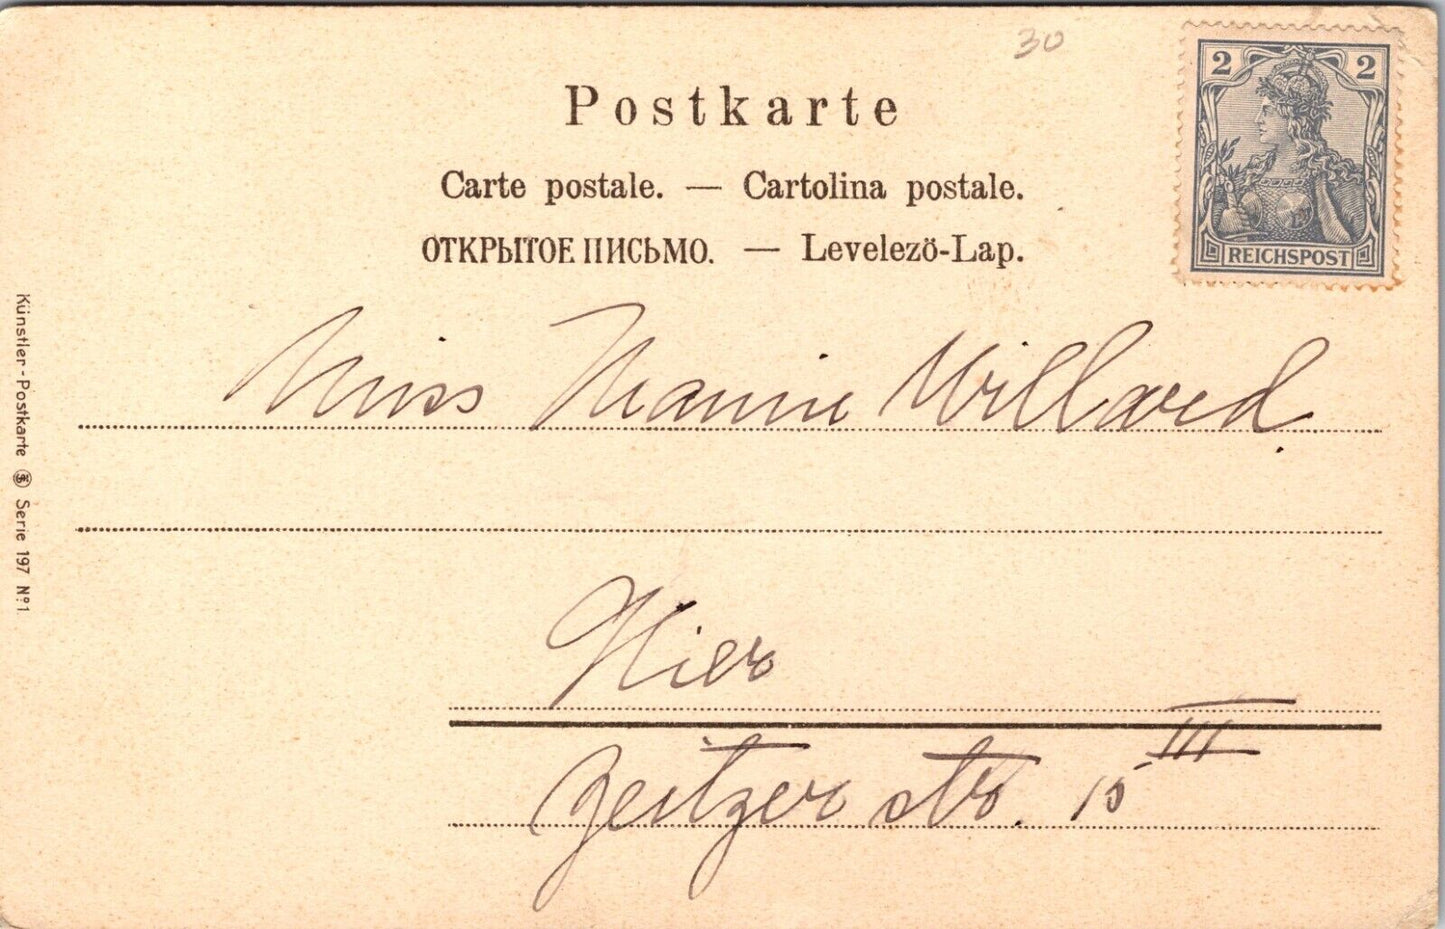 30
Postkarte
2 2
Carte postale. — Cartolina postale.
ОТКРЫТОЕ ПИСЬМО. — Levelezö-Lap.
REICHSPOST
Miss Mamie Willard.
Hier
Zeitzer str. 15 III
Künstler-Postkarte Serie 197 Nº1.